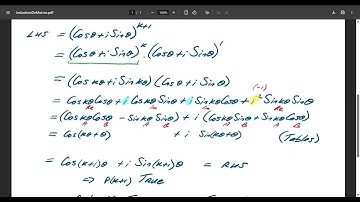 InductionDeMoivre.pdf
LHS = (Cosθ + i Sinθ)^(k+1)
= (Cosθ + i Sinθ)^k . (Cosθ + i Sinθ)^1
= (Cos kθ + i Sin kθ) (Cosθ + i Sinθ)
(-1)
= Cos kθ Cosθ + i Cos kθ Sinθ + i Sin kθ Cosθ + i² Sin kθ Sinθ
Re Im Im Re
= (Cos kθ Cosθ - Sin kθ Sinθ) + i (Cos kθ Sinθ + Sin kθ Cosθ)
A B A B A B A B
= Cos (kθ + θ) + i Sin (kθ + θ) (Tables)
= Cos (k+1)θ + i Sin (k+1)θ = RHS
⇒ P(k+1) True